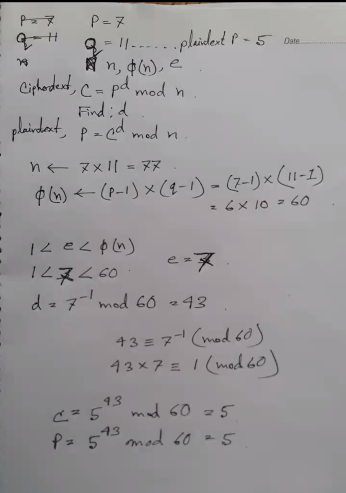 P = 7 P = 7
Q = 11 q = 11 ...... plaindext P = 5 Date
n n, φ(n), e
Ciphordext, C = P^d mod n.
Find; d
plaindext, P = C^d mod n.
n ← 7 × 11 = 77
φ(n) ← (P-1) × (q-1) = (7-1) × (11-1)
= 6 × 10 = 60
1 < e < φ(n)
1 < 7 < 60 e = 7
d = 7^-1 mod 60 = 43
43 ≡ 7^-1 (mod 60)
43 × 7 ≡ 1 (mod 60)
C = 5^43 mod 60 = 5
P = 5^43 mod 60 = 5